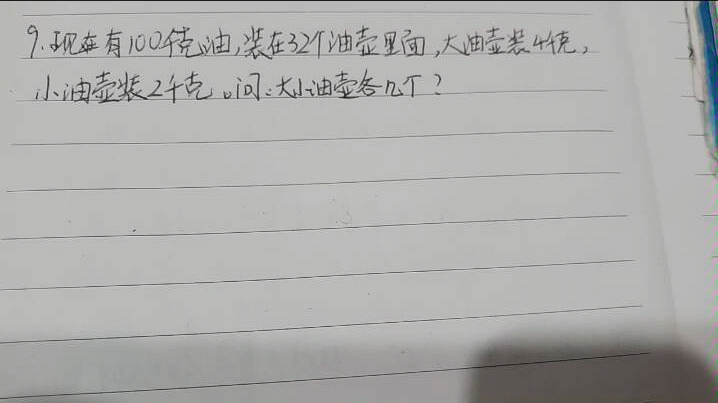 9.现在有100千克油,装在32个油壶里面,大油壶装4千克,
小油壶装2千克。问:大小油壶各几个?